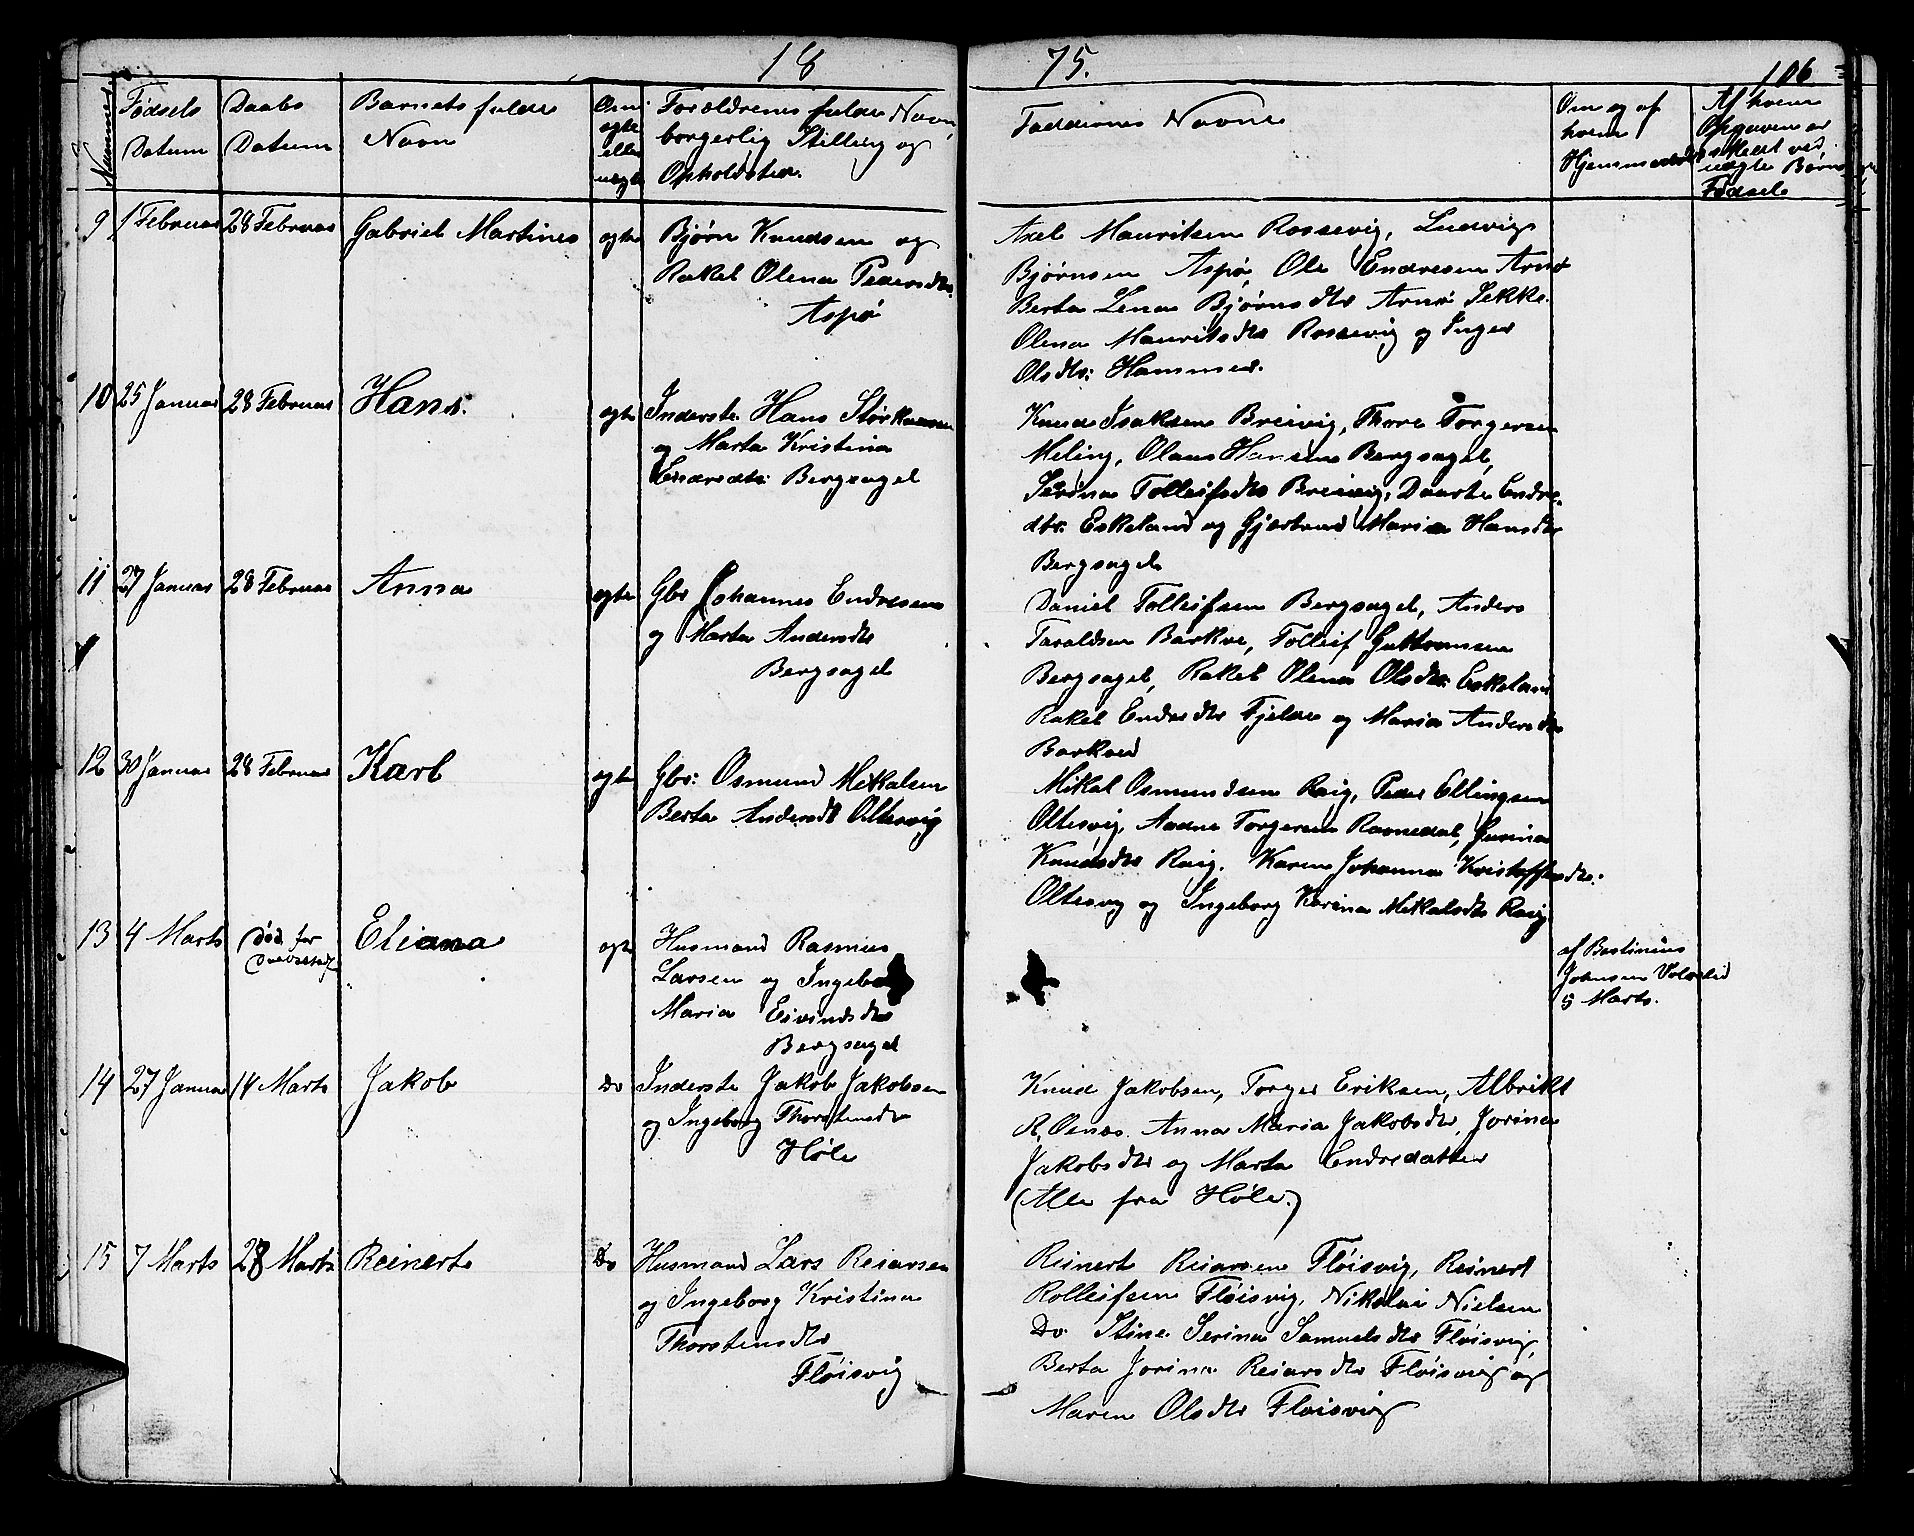 18 75. 106.
Nummer
Fødsels Datum
Daabs Datum
Barnets fulde Navn
Om ægte eller uægte
Forældrenes fulde Navn, borgerlig Stilling og Opholdsted.
Faddernes Navne
Om og af hvem Hjemmedøbt
Af hvem Opgaven er skeet ved uægte Børns Fødsel
9 1 Februar 28 Februar Gabriel Martines ægte
Bjørn Knudsen og
Rakel Olena Pedersdtr.
Aspø
Axel Mauritsen Rossevig, Ludvig
Bjørnsen Aspø, Ole Endresen Arnø
Berta Lena Bjørnsdtr Arnø Sekke.
Olena Mauritsdtr Rossevig og Inger
Olsdtr: Hammer.
10 25 Januar 28 Februar Hans. ægte
Inderste Hans Størkersen
og Marta Kristina
Endresdtr: Bergsagel
Knud Isaksen Breivig, Thore Torgersen
Meling, Olaus Hansen Bergsagel,
Serina Tolleifsdtr Breivig, Daarte Endre-
dtr: Eskeland og Gjertrud Maria Hansdtr
Bergsagel
11 27 Januar 28 Februar Anna ægte
Gbr Johannes Endresen
og Marta Andersdtr
Bergsagel
Daniel Tolleifsen Bergsagel, Anders
Taraldsen Barkve, Tolleif Guttormsen
Bergsagel, Rakel Olena Olsdtr: Eskeland
Rakel Endresdtr Fjelde og Maria Andersdtr
Barkved
12 30 Januar 28 Februar Karl ægte
Gbr: Osmund Mikalsen
Berta Andersdtr Oltesvig
Mikal Osmundsen Røig, Peder Ellingsen
Oltesvig, Aadne Torgersen Ravnedal, Gurina
Knudsdtr Røig. Karen Johanna Kristoffersdtr:
Oltesvig og Ingeborg Karina Mikalsdtr Røig
13 4 Marts Død før Daabsattest Eliana ægte
Husmand Rasmus
Larsen og Ingeborg
Maria Eivindsdtr
Bergsagel
af Bastinius
Johnsen Volselid
5 Marts.
14 27 Januar 14 Marts Jakob Do
Inderste Jakob Jakobsen
og Ingeborg Thorstensdtr
Høle
Knud Jakobsen, Torger Eriksen, Albrikt
R. Osnes. Anna Maria Jakobsdtr, Jorina
Jakobsdtr og Marta Endredatter
(Alle fra Høle.)
15 7 Marts 28 Marts Reinert Do
Husmand Lars Reiarsen
og Ingeborg Kristina
Thorstensdtr
Fløisvig
Reinert Reiarsen Fløisvig, Reinert
Rolleifsen Fløisvig, Nikolai Nielsen
Do. Stine Serina Samuelsdtr Fløisvig,
Berta Jorina Reiarsdtr Fløisvig og
Maren Olsdtr Fløisvig